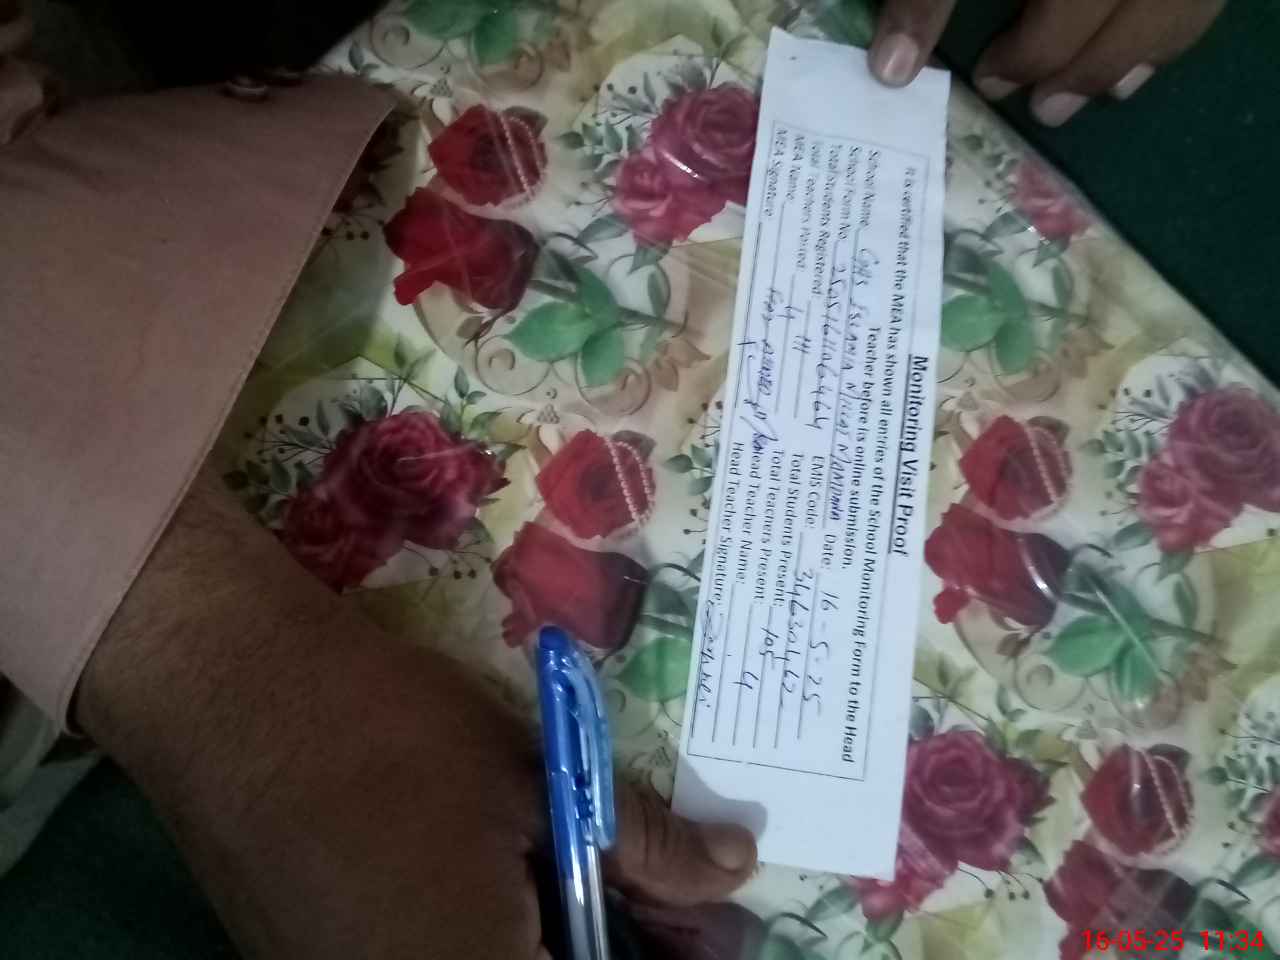 Monitoring Visit Proof
It is certified that the MEA has shown all entries of the School Monitoring Form to the Head
Teacher before its online submission.
School Name GHS ISLAMIA MILLAT Date: 16-5-25
School Form No. EMIS Code: 34630462
Total Students Registered: 111 Total Students Present: 105
Total Teachers Posted: 4 Total Teachers Present: 4
MEA Name: Head Teacher Name:
MEA Signature: Head Teacher Signature:
16-05-25 11:34